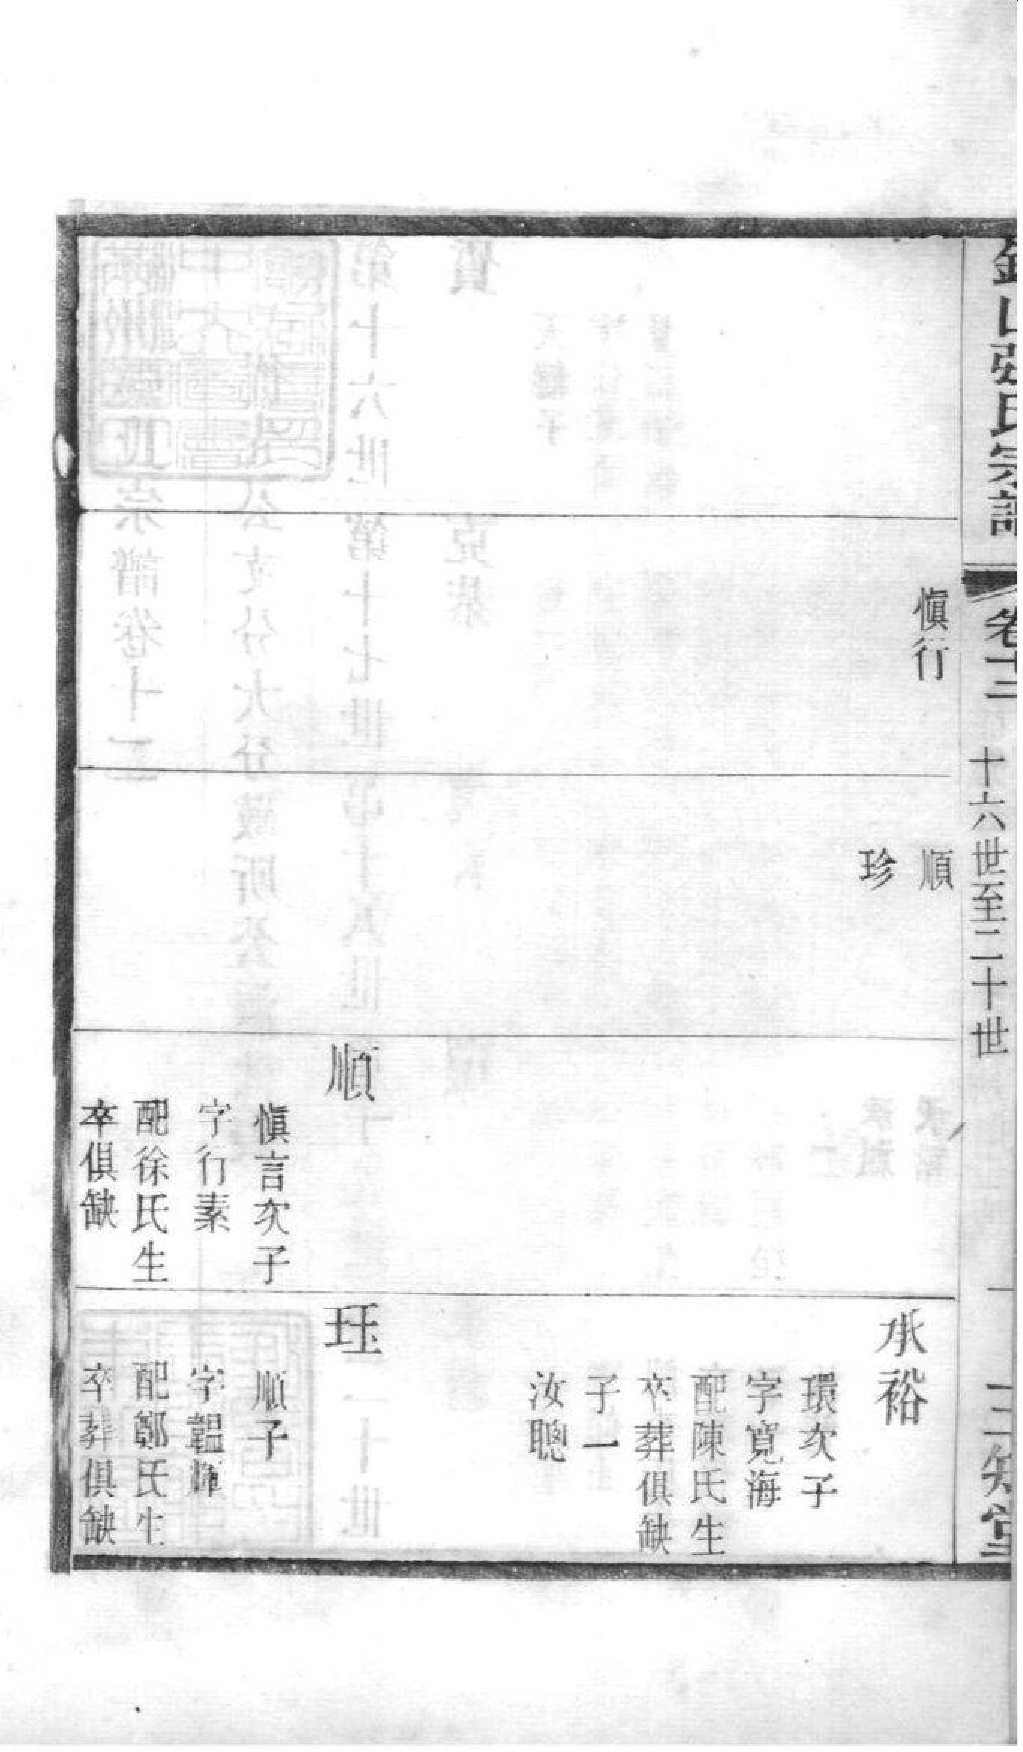 山張氏宗譜
卷十二
十六世至二十世
一
三知堂
慎行
順
珍
順
慎言次子
字行素
配徐氏生
卒俱缺
承裕
環次子
字寬海
配陳氏生
卒葬俱缺
子一
汝聰
珏
順子
字韞輝
配鄭氏生
卒葬俱缺